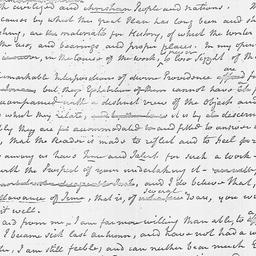 the civilized and christian People and nations.
causes by which this great Plan has long been and st
thing, are the materials for History, of which the writer
the uses, and bearings and proper places. In my opin
in the course of the work, to lose sight of the
remarkable Interpositions of divine Providence
but they Exhibitions of them cannot have the
accompanied with a distinct view of the Object and
which they relate, it is by a discern
they are accommodated to and fitted to answer
that the Reader is made to reflect and to feel
among us have time and talent for such a work
with the Prospect of your undertaking it
and I do believe that,
allowance of Time, that is, of Several Years, you w
it well.
aid from me, I am far more willing than able, to
I became sick last autumn, and have not had a w
I am still feeble, and can neither bear much